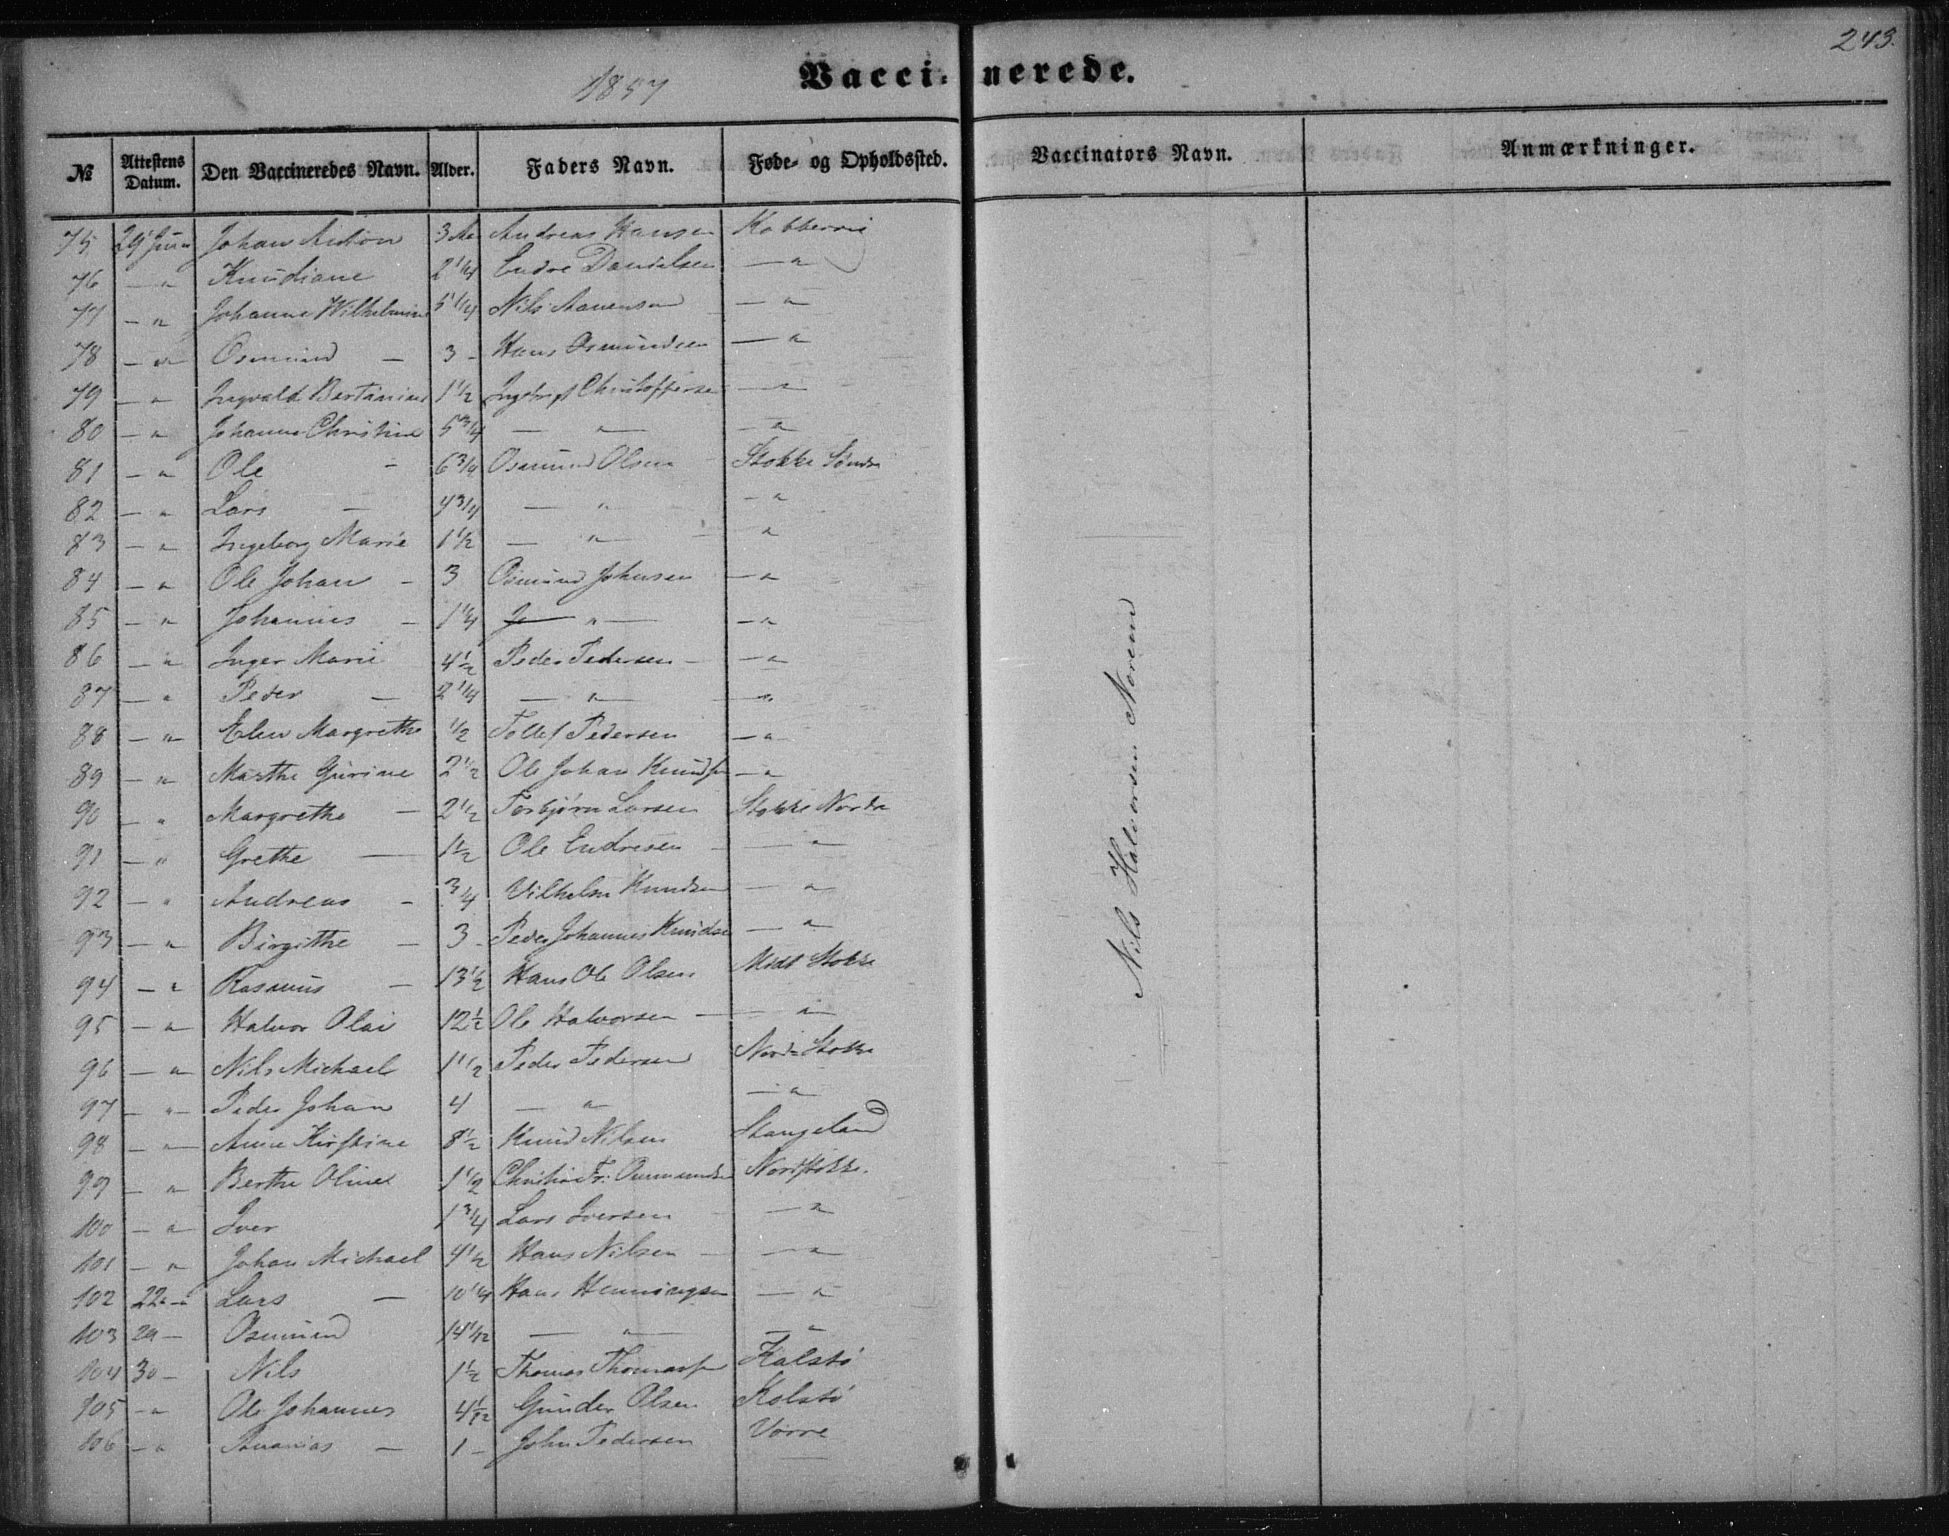 243.
1857
Vaccinerede.
№ | Attestens Datum. | Den Vaccineredes Navn. | Alder. | Faders Navn. | Føde- og Opholdssted. | Vaccinators Navn. | Anmærkninger.
75 | 29 Juni | Johan Anton | 3 Aa | Andreas Hansen | Kobbervig
76 | — " | Knudiane | 2 1/4 | Endre Danielsen | — "
77 | — " | Johanne Wilhelmine | 5 1/4 | Nils | — "
78 | — " | Osmund — | 3 - | Hans Osmundsen | — "
79 | — " | Ingvald Bertinius | 1 1/2 | Christoffersen | — "
80 | — " | Johanne Christine | 5 3/4 | — " — | — "
81 | — " | Ole - | 6 3/4 | Osmund Olsen | Stokke Søndre
82 | — " | Lars — | 4 3/4 | — " | — "
83 | — " | Ingeborg Marie | 1 1/2 | — " — | "
84 | — " | Ole Johan - | 3 | Osmund Johnsen | — "
85 | — " | Johannes - | 1 1/4 | — " — | — "
86 | — " | Inger Marie | 4 1/2 | Peder Pedersen - | — "
87 | — " | Peder — | 2 1/4 | — " — | — "
88 | — " | Elen Margrethe | 1/2 | Tollef Pedersen | — "
89 | — " | Marthe Gurine | 2 1/2 | Ole Johan Knudsen | — "
90 | — " | Margrethe — | 2 1/2 | Torbjørn Larsen | Stokke Nordre
91 | — " | Grethe — | 1 1/2 | Ole Endresen - | — "
92 | — " | Andreas - | 3/4 | Vilhelm Knudsen | — "
93 | — " | Birgithe — | 3 - | Peder Johannes Knudsen | — "
94 | — " | Rasmus — | 13 1/2 | Hans Ole Olsen | Midt Stokke
95 | — " | Halvor Olai | 12 1/2 | Ole Halvorsen — | "
96 | — " | Nils Michael | 1 1/2 | Peder Pedersen | Nord Stokke
97 | — " | Peder Johan | 4 | — " | — "
98 | — " | Anne Kirstine | 8 1/2 | Knud Nilsen | Stangeland
99 | — " | Berthe Oline | 1 1/2 | Christian Fr: | Nordstokke.
100 | — " | Iver | 1 3/4 | Lars Iversen - | — "
101 | — " | Johan Michael | 4 1/2 | Hans Nilsen - | — "
102 | 22 — " | Lars — | 10 1/4 | Hans Henningsen | — "
103 | 29 — | Osmund | 14 1/12 | — " — | — "
104 | 30 — | Nils | 1 1/2 | Thomas Thomassen | Kalstø
105 | — " | Ole Johannes | 4 1/12 | Gunder Olsen | Kolstø
106 | — " | Ananias — | 1 - | John Pedersen | Vorre
Nils Halvorsen Noreim